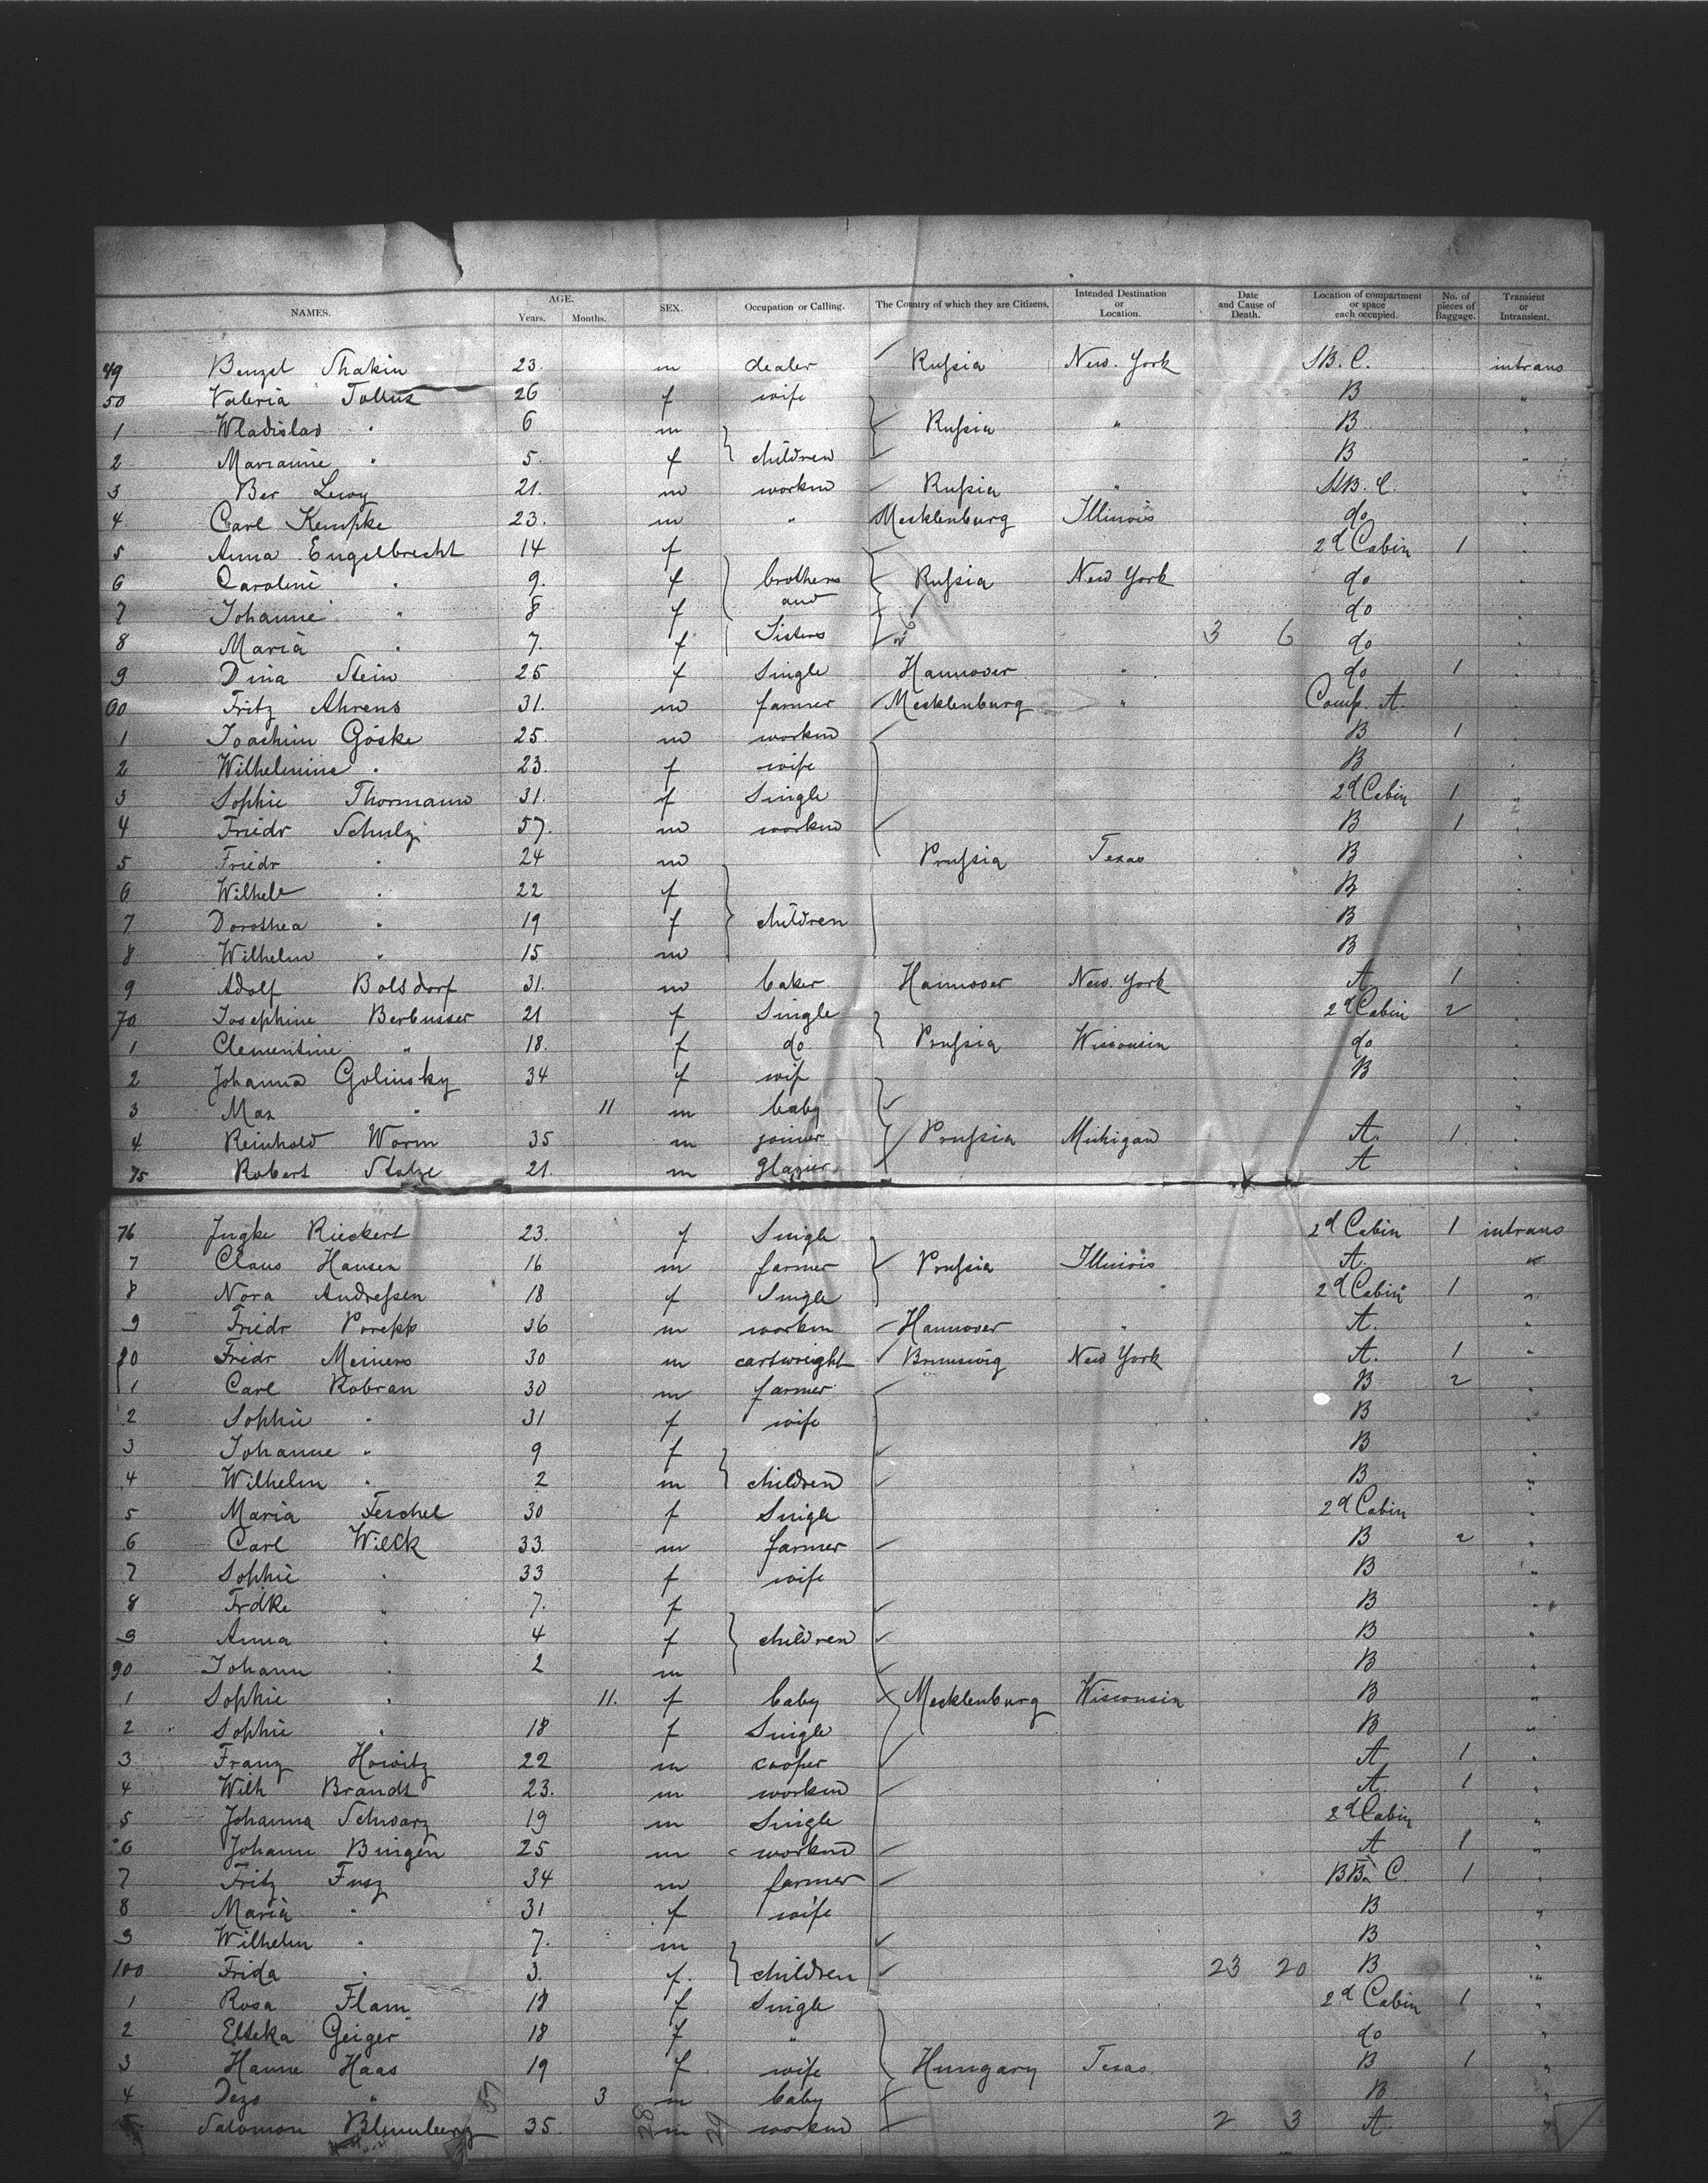 NAMES. AGE. Years. Months. SEX. Occupation or Calling. The Country of which they are Citizens. Intended Destination or Location. Date and Cause of Death. Location of compartment or space each occupied. No. of pieces of Baggage. Transient or Intransient.
49 Benzel Shakin 23. m dealer Rußia New York StB. C. intrans
50 Valeria Tollus 26 f wife B "
1 Wladislad " 6 m Rußia " B "
2 Marianne " 5. f children B "
3 Ber Lewy 21. m workm Rußia " StB. C. "
4 Carl Kempke 23. m " Mecklenburg Illinois do "
5 Anna Engelbrecht 14 f 2d Cabin 1 "
6 Caroline " 9. f brothers Rußia New York do "
7 Johanne " 8 f and do "
8 Maria " 7. f Sisters 3 6 do "
9 Dina Stein 25 f Single Hannover " do 1 "
60 Fritz Ahrens 31. m farmer Mecklenburg " Comp. A. "
1 Joachim Göske 25. m workm B 1 "
2 Wilhelmine " 23. f wife B "
3 Sophie Thormann 31. f Single 2d Cabin 1 "
4 Friedr Schulz 57. m workm B 1 "
5 Friedr " 24 m Prußia Texas B "
6 Wilhele " 22 f B "
7 Dorothea " 19 f children B "
8 Wilhelm " 15 m B "
9 Adolf Bolsdorf 31. m baker Hannover New York A. 1 "
70 Josephine Berbusser 21 f Single 2d Cabin 2 "
1 Clementine " 18. f do Prußia Wisconsin do "
2 Johanna Golinsky 34 f wif B "
3 Max " 11 m baby "
4 Reinhold Worm 35 m joiner Prußia Michigan A. 1 "
75 Robert Stolze 21. m glazier A "
76 Jngke Rieckert 23. f Single 2d Cabin 1 intrans
7 Claus Hansen 16 m farmer Prußia Illinois A. "
8 Nora Andreßen 18 f Single " 2d Cabin 1 "
9 Friedr Porepp 36 m workm Hannover " A. "
80 Friedr Meiners 30 m cartwright Brunswig New York A. 1 "
1 Carl Robran 30 m farmer B 2 "
2 Sophie " 31 f wife B "
3 Johanne " 9 f B "
4 Wilhelm " 2 m children B "
5 Maria Feschel 30 f Single 2d Cabin "
6 Carl Wilck 33. m farmer B 2 "
7 Sophie " 33 f wife B "
8 Frdke " 7. f B "
9 Anna " 4 f children B "
90 Johann " 2 m B "
1 Sophie " 11. f baby Mecklenburg Wisconsin B "
2 Sophie " 18 f Single B "
3 Franz Howitz 22 m cooper A 1 "
4 Wilh Brandt 23. m workm A. 1 "
5 Johanna Schwarz 19 m Single 2d Cabin "
6 Johann Bingen 25 m workm A 1 "
7 Fritz Fusz 34 m farmer BB. C. 1 "
8 Maria " 31 f wife B "
9 Wilhelm " 7. m B "
100 Frida " 3. f. children 23 20 B "
1 Rosa Flam 18 f Single 2d Cabin 1 "
2 Elteka Geiger 18 f " do "
3 Hanne Haas 19 f wife Hungary Texas B 1 "
4 Dezo " 3 m baby B "
Salomon Blumberg 35. m workm 2 3 A. "
28 29